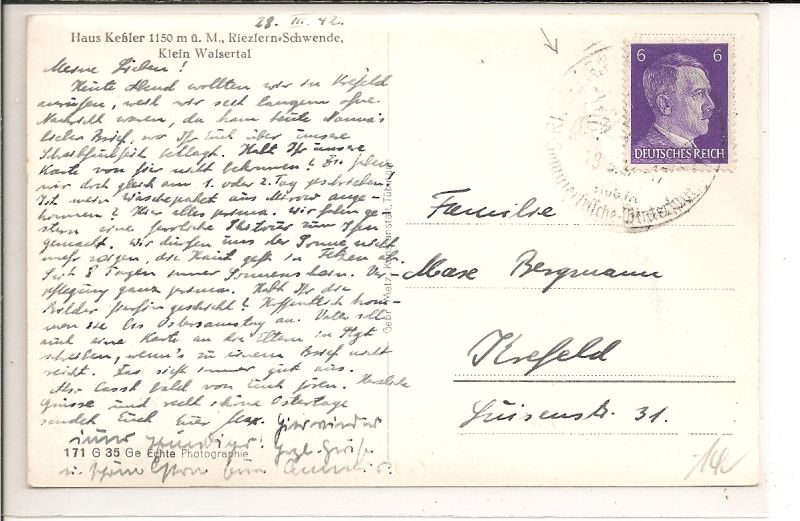 28. III. 42.
Haus Keßler 1150 m ü. M., Riezlern-Schwende,
Klein Walsertal
Meine Lieben!
Heute Abend wollten wir in Krefeld
anrufen, weil wir seit langem ohne
Nachricht waren, da kam heute Mamma's
lieber Brief, wo Ihr Euch über unsere
Schreibfaulheit beklagt. Habt Ihr unsere
Karte von hier nicht bekommen? Die haben
wir doch gleich am 1. oder 2. Tag geschrieben.
Ist mein Wäschepaket aus ange-
kommen? Hier alles prima. Wir haben ge-
stern eine herrliche Skitour zum Ifen
gemacht. Wir dürfen uns der Sonne nicht
mehr zeigen, die Haut geht in Fetzen ab.
Seit 8 Tagen immer Sonnenschein. Ver-
pflegung ganz prima. Habt Ihr die
Bilder geschickt? Hoffentlich kom-
men sie bis Ostersamstag an. Vater soll
auch eine Karte an die Eltern in Stgt
schreiben, wenn's zu einem Brief nicht
reicht. Das sieht immer gut aus.
Also lasst bald von Euch hören. Herzliche
Grüsse und recht schöne Ostertage
sendet Euch Euer Max.
171 G 35 Ge Echte Photographie
Gebr. Metz, Kunstanstalt, Tübingen
6 6
DEUTSCHES REICH
Sommerfrische-Wintersport
Familie
Max Bergmann
Krefeld
Luisenstr. 31.